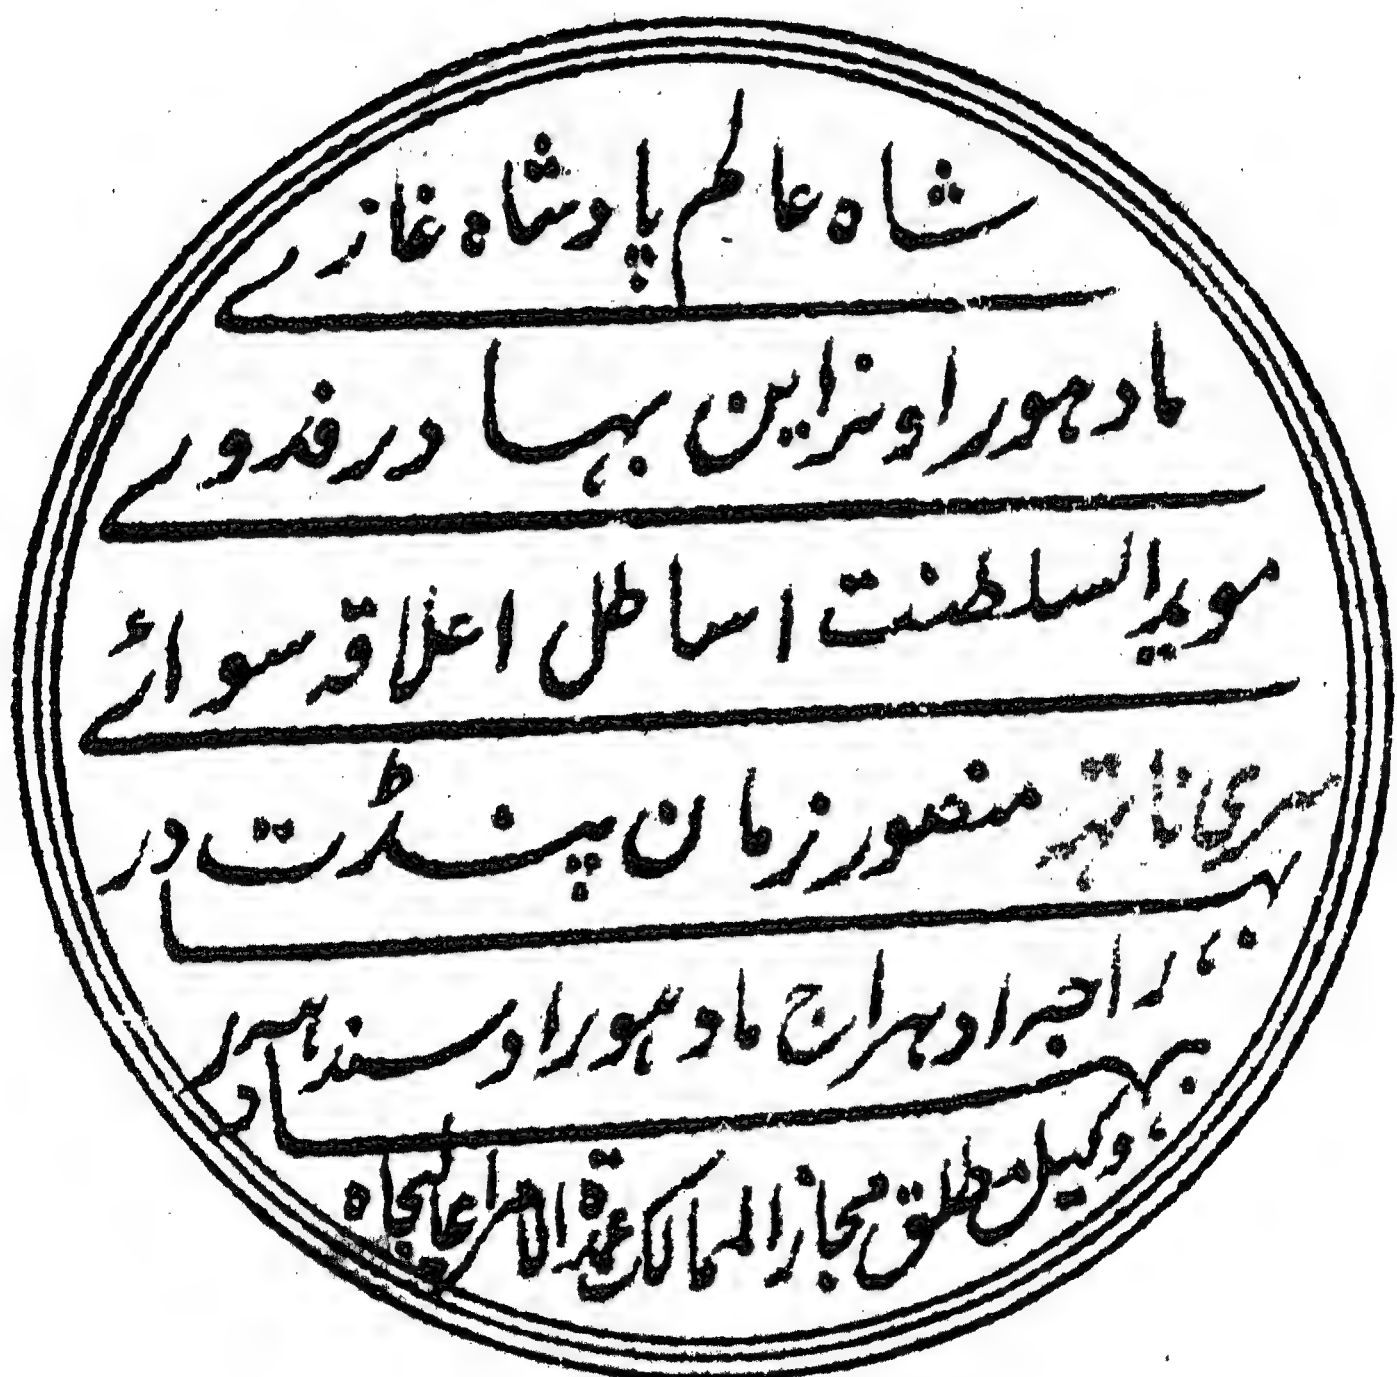 شاه عالم پادشاه غازے
مادہوراونراین بہادر فدوے
مویدالسلطنت اساطل اعلاقہ سوائے
سری ناتہہ منصور زمان پنڈت در
بہا راجہ ادہراج مادہوراو سندہیہ
بہادر وکیل مطلق مجاز الممالک عمدة الامرا عالیجاہ